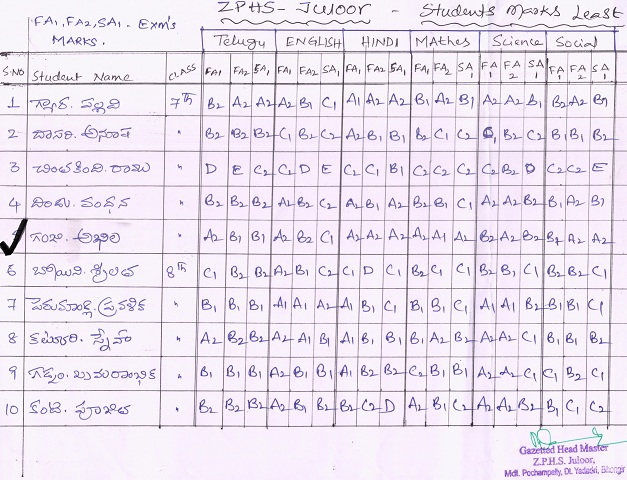 FA1, FA2, SA1 - Exm's MARKS.
ZPHS- Juloor - Students Marks Least
Telugu ENGLISH HINDI Mathes Science Social
S.NO Student Name CLASS FA1 FA2 SA1 FA1 FA2 SA1 FA1 FA2 SA1 FA1 FA2 SA1 FA1 FA2 SA1 FA1 FA2 SA1
1 7th B2 A2 A2 A2 B1 C1 A1 A2 A2 B1 A2 B1 A2 A2 B1 B2 A2 B1
2 దాసరి. అనూష " B2 B2 B2 C1 B2 C2 A2 B1 B1 B2 C1 C2 C1 B2 C2 B1 B1 B2
3 చింతకింది. రాము " D E C2 C2 D E C2 C1 B1 C2 C2 C2 C2 B2 D C2 C2 E
4 వందన " B2 B2 B2 A2 B2 C2 A2 B1 A2 B2 B1 C1 A2 A2 B2 B1 A2 B1
గంజి. అఖిల " A2 B1 B1 A2 B2 C1 A2 A2 A2 A2 A1 A2 B2 A2 B2 A2 A2
6 శ్రీలత 8th C1 B2 B2 A2 B1 C2 C1 D C1 B2 C1 C1 B2 B2 C1 B2 B2 C1
7 " B1 B1 B1 A1 A1 A2 A1 B1 C1 B1 B1 C1 A1 A1 B2 B1 B1 C1
8 కట్కూరి. స్నేహ " A2 B2 B2 A2 A1 B1 A1 B1 B1 B1 A2 B2 A2 A2 C1 B1 B1 B2
9 " B1 B1 B1 A2 B1 B1 A1 B2 B2 C2 B1 B1 A2 A2 C1 C1 B2 C1
10 పూజిత " B2 B2 B2 A2 B1 B2 B2 C2 D A2 B1 C2 A2 A2 B2 B1 C1 C2
Gazetted Head Master
Z.P.H.S. Juloor,
Mdl. Pochampally, Dt. Yadadri, Bhongir